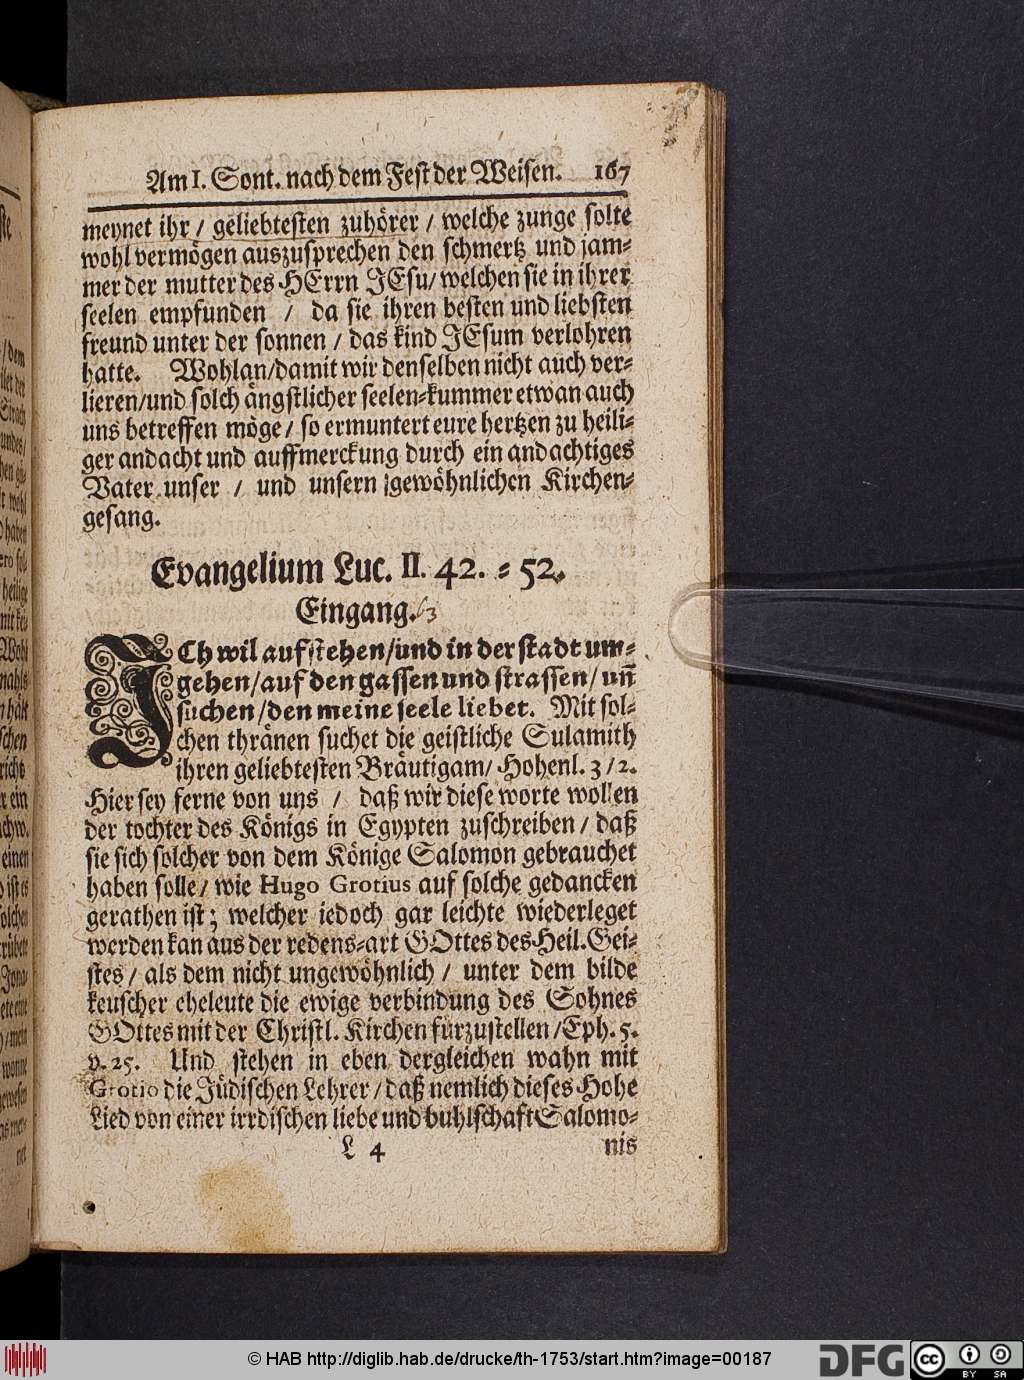 Am I. Sont. nach dem Fest der Weisen. 167
meynet ihr / geliebtesten zuhörer / welche zunge solte
wohl vermögen auszusprechen den schmertz und jam⸗
mer der mutter des HErrn JEsu / welchen sie in ihrer
seelen empfunden / da sie ihren besten und liebsten
freund unter der sonnen / das kind JEsum verlohren
hatte. Wohlan / damit wir denselben nicht auch ver⸗
lieren / und solch ängstlicher seelen⸗kummer etwan auch
uns betreffen möge / so ermuntert eure hertzen zu heili⸗
ger andacht und auffmerckung durch ein andachtiges
Vater unser / und unsern gewöhnlichen Kirchen⸗
gesang.
Evangelium Luc. II. 42. ⸗ 52.
Eingang.
JCh wil aufstehen / und in der stadt um⸗
gehen / auf den gassen und strassen / un̄
suchen / den meine seele liebet. Mit sol⸗
chen thränen suchet die geistliche Sulamith
ihren geliebtesten Bräutigam / Hohenl. 3 / 2.
Hier sey ferne von uns / daß wir diese worte wollen
der tochter des Königs in Egypten zuschreiben / daß
sie sich solcher von dem Könige Salomon gebrauchet
haben solle / wie Hugo Grotius auf solche gedancken
gerathen ist; welcher jedoch gar leichte wiederleget
werden kan aus der redens⸗art GOttes des Heil. Gei⸗
stes / als dem nicht ungewöhnlich / unter dem bilde
keuscher eheleute die ewige verbindung des Sohnes
GOttes mit der Christl. Kirchen fürzustellen / Eph. 5.
v. 25. Und stehen in eben dergleichen wahn mit
Grotio die Jüdischen Lehrer / daß nemlich dieses Hohe
Lied von einer irrdischen liebe und buhlschaft Salomo⸗
L 4 nis
© HAB http://diglib.hab.de/drucke/th-1753/start.htm?image=00187
DFG
cc BY SA